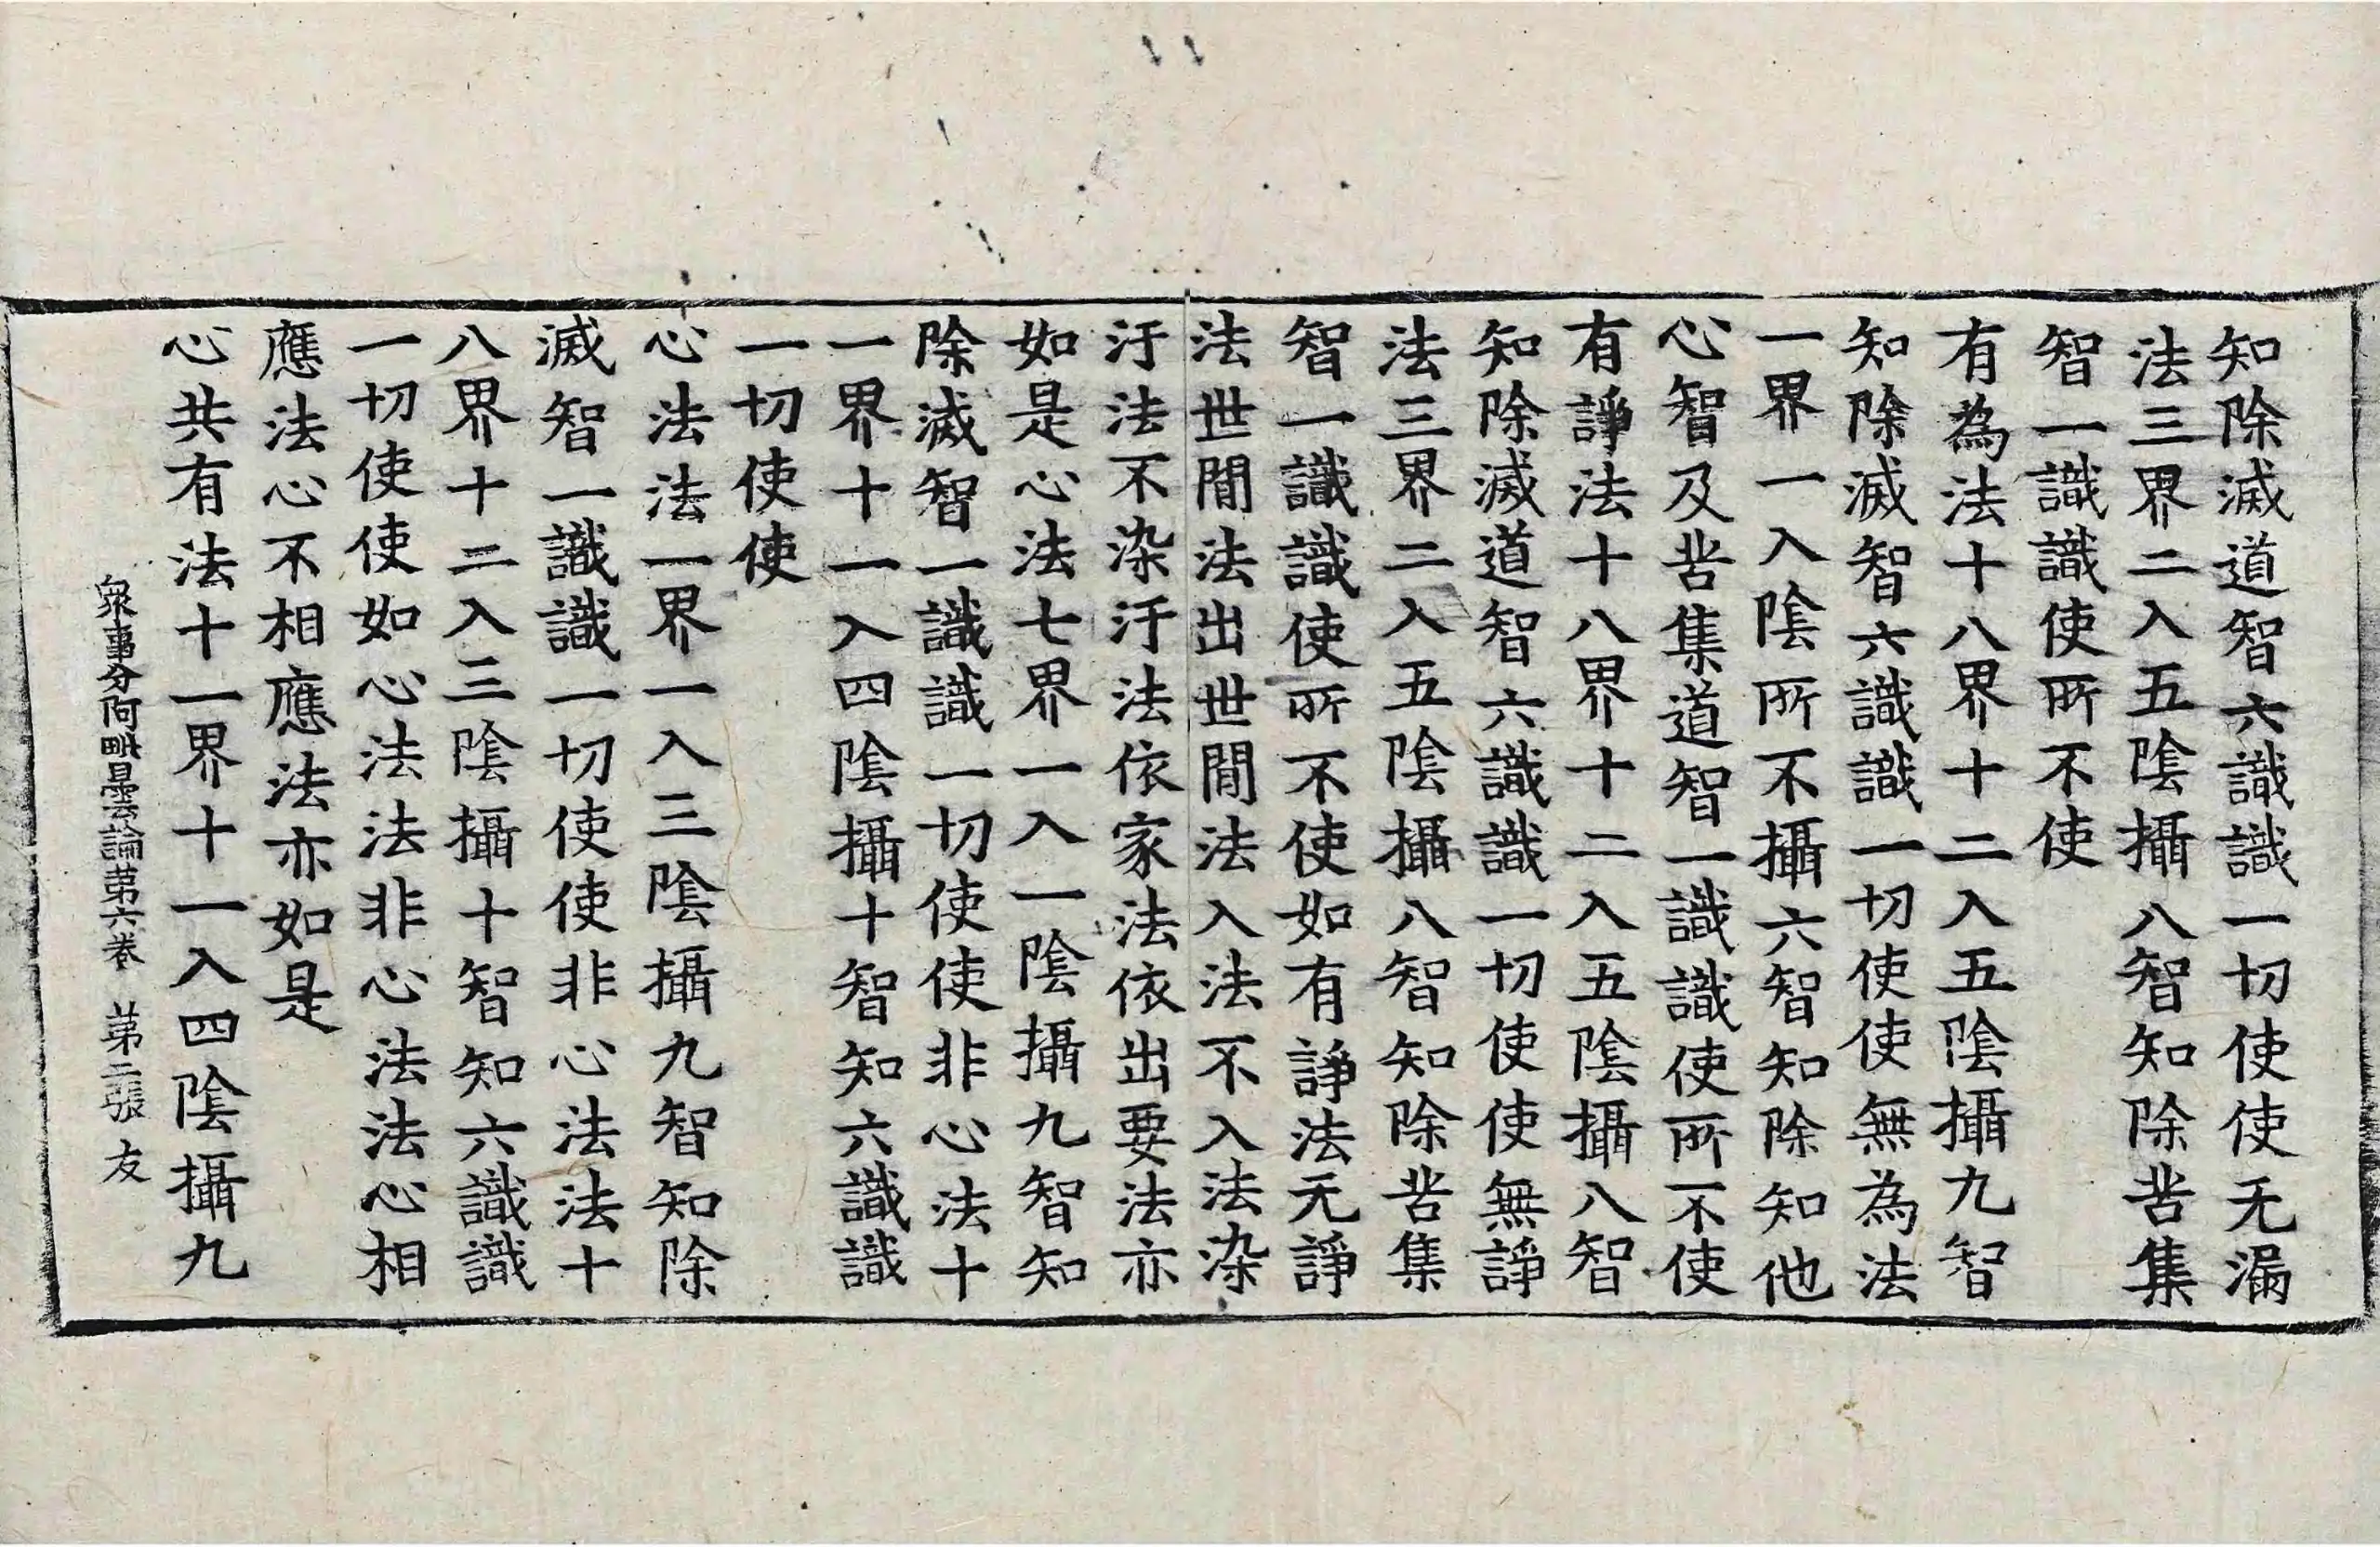 知除滅道智六識識一切使使无漏
法三界二入五陰攝八智知除苦集
智一識識使所不使
有為法十八界十二入五陰攝九智
知除滅智六識識一切使使無為法
一界一入陰所不攝六智知除知他
心智及苦集道智一識識使所不使
有諍法十八界十二入五陰攝八智
知除滅道智六識識一切使使無諍
法三界二入五陰攝八智知除苦集
智一識識使所不使如有諍法无諍
法世間法出世間法入法不入法染
汙法不染汙法依家法依出要法亦
如是心法七界一入一陰攝九智知
除滅智一識識一切使使非心法十
一界十一入四陰攝十智知六識識
一切使使
心法法一界一入三陰攝九智知除
滅智一識識一切使使非心法法十
八界十二入三陰攝十智知六識識
一切使使如心法法非心法法心相
應法心不相應法亦如是
心共有法十一界十一入四陰攝九
眾事分阿毗曇論第六卷 第二張 友